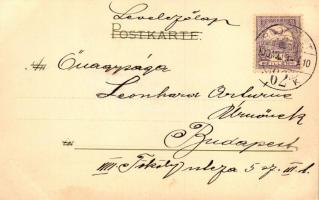 Levelezőlap
POSTKARTE.
Őnagysága
Leonhard Arturné
Úrnőnek
Budapest
VIII Tököly utcza 5 sz. III. b.